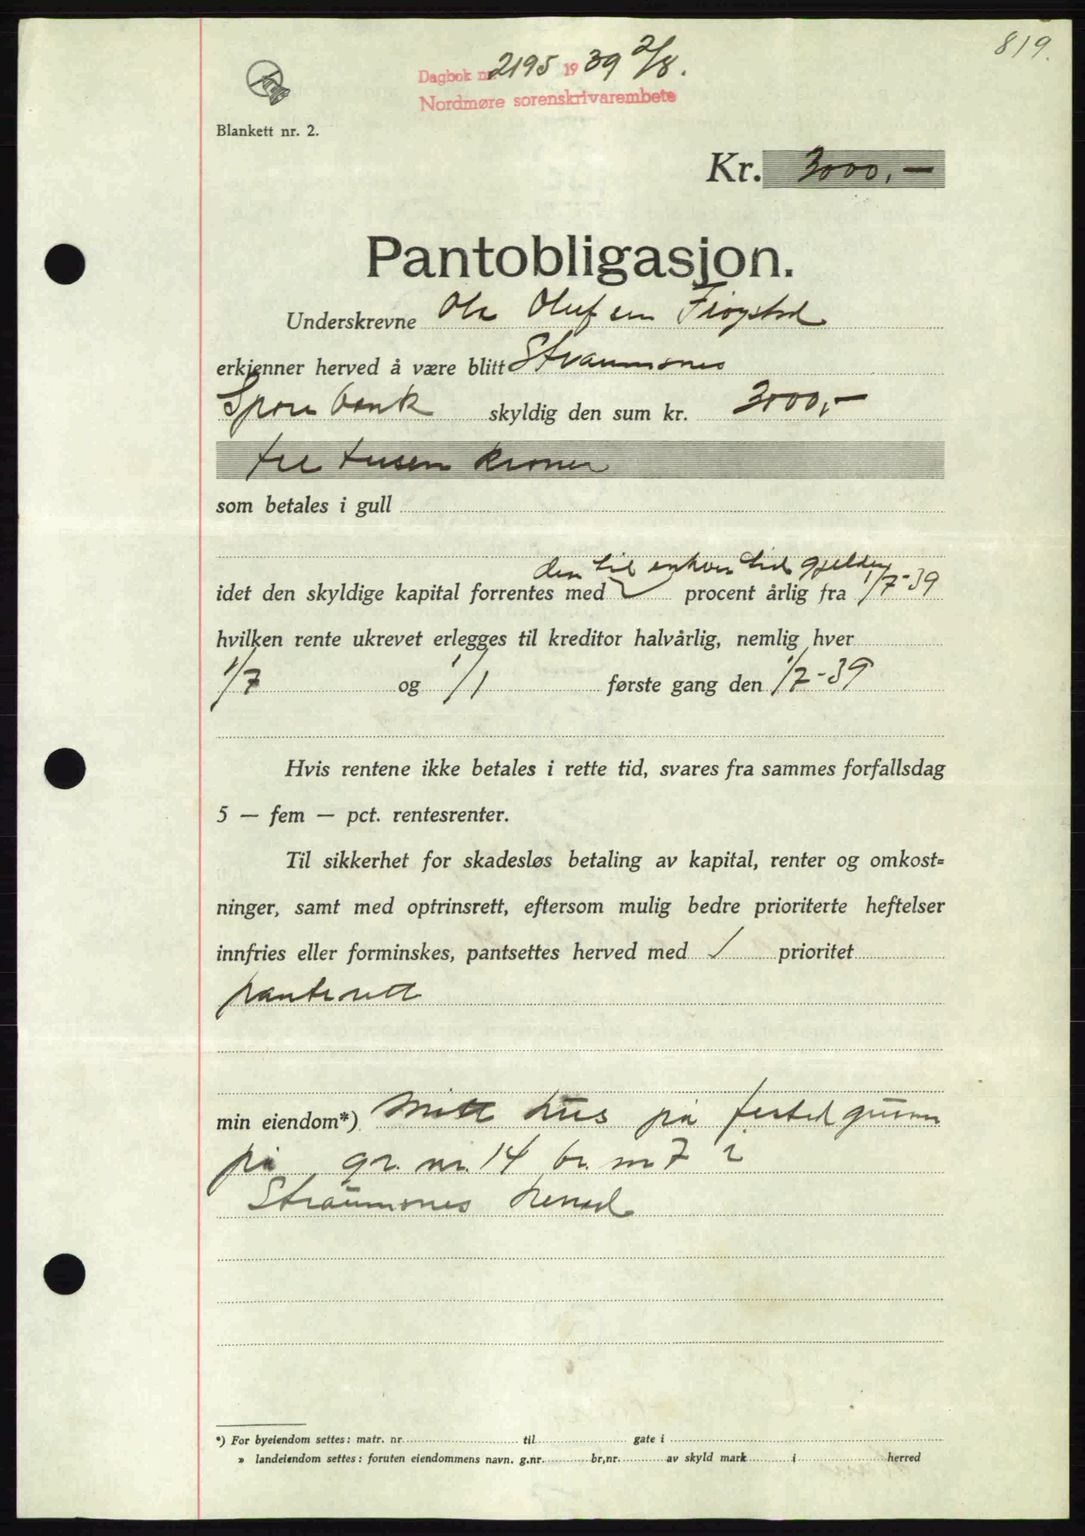 819.
Dagbok nr. 2195 1939 2/8.
Nordmøre sorenskrivarembete
Blankett nr. 2.
Kr. 3000,—
Pantobligasjon.
Underskrevne Ola Olufsen Frøystad
erkjenner herved å være blitt Straumsnes
Sparebank skyldig den sum kr. 3000,-
tre tusen kroner
som betales i gull
den til enhver tid gjelden
idet den skyldige kapital forrentes med procent årlig fra 1/7-39
hvilken rente ukrevet erlegges til kreditor halvårlig, nemlig hver
1/7 og 1/1 første gang den 1/7-39
Hvis rentene ikke betales i rette tid, svares fra sammes forfallsdag
5 — fem — pct. rentesrenter.
Til sikkerhet for skadesløs betaling av kapital, renter og omkost=
ninger, samt med optrinsrett, eftersom mulig bedre prioriterte heftelser
innfries eller forminskes, pantsettes herved med 1 prioritet
panterett
min eiendom*) mitt hus på festet grunn
på gr. nr. 14 br. nr 7 i
Straumsnes herred
*) For byeiendom settes: matr. nr. til gate i
» landeiendom settes: foruten eiendommens navn. g.nr. br,nr. av skyld mark i herred